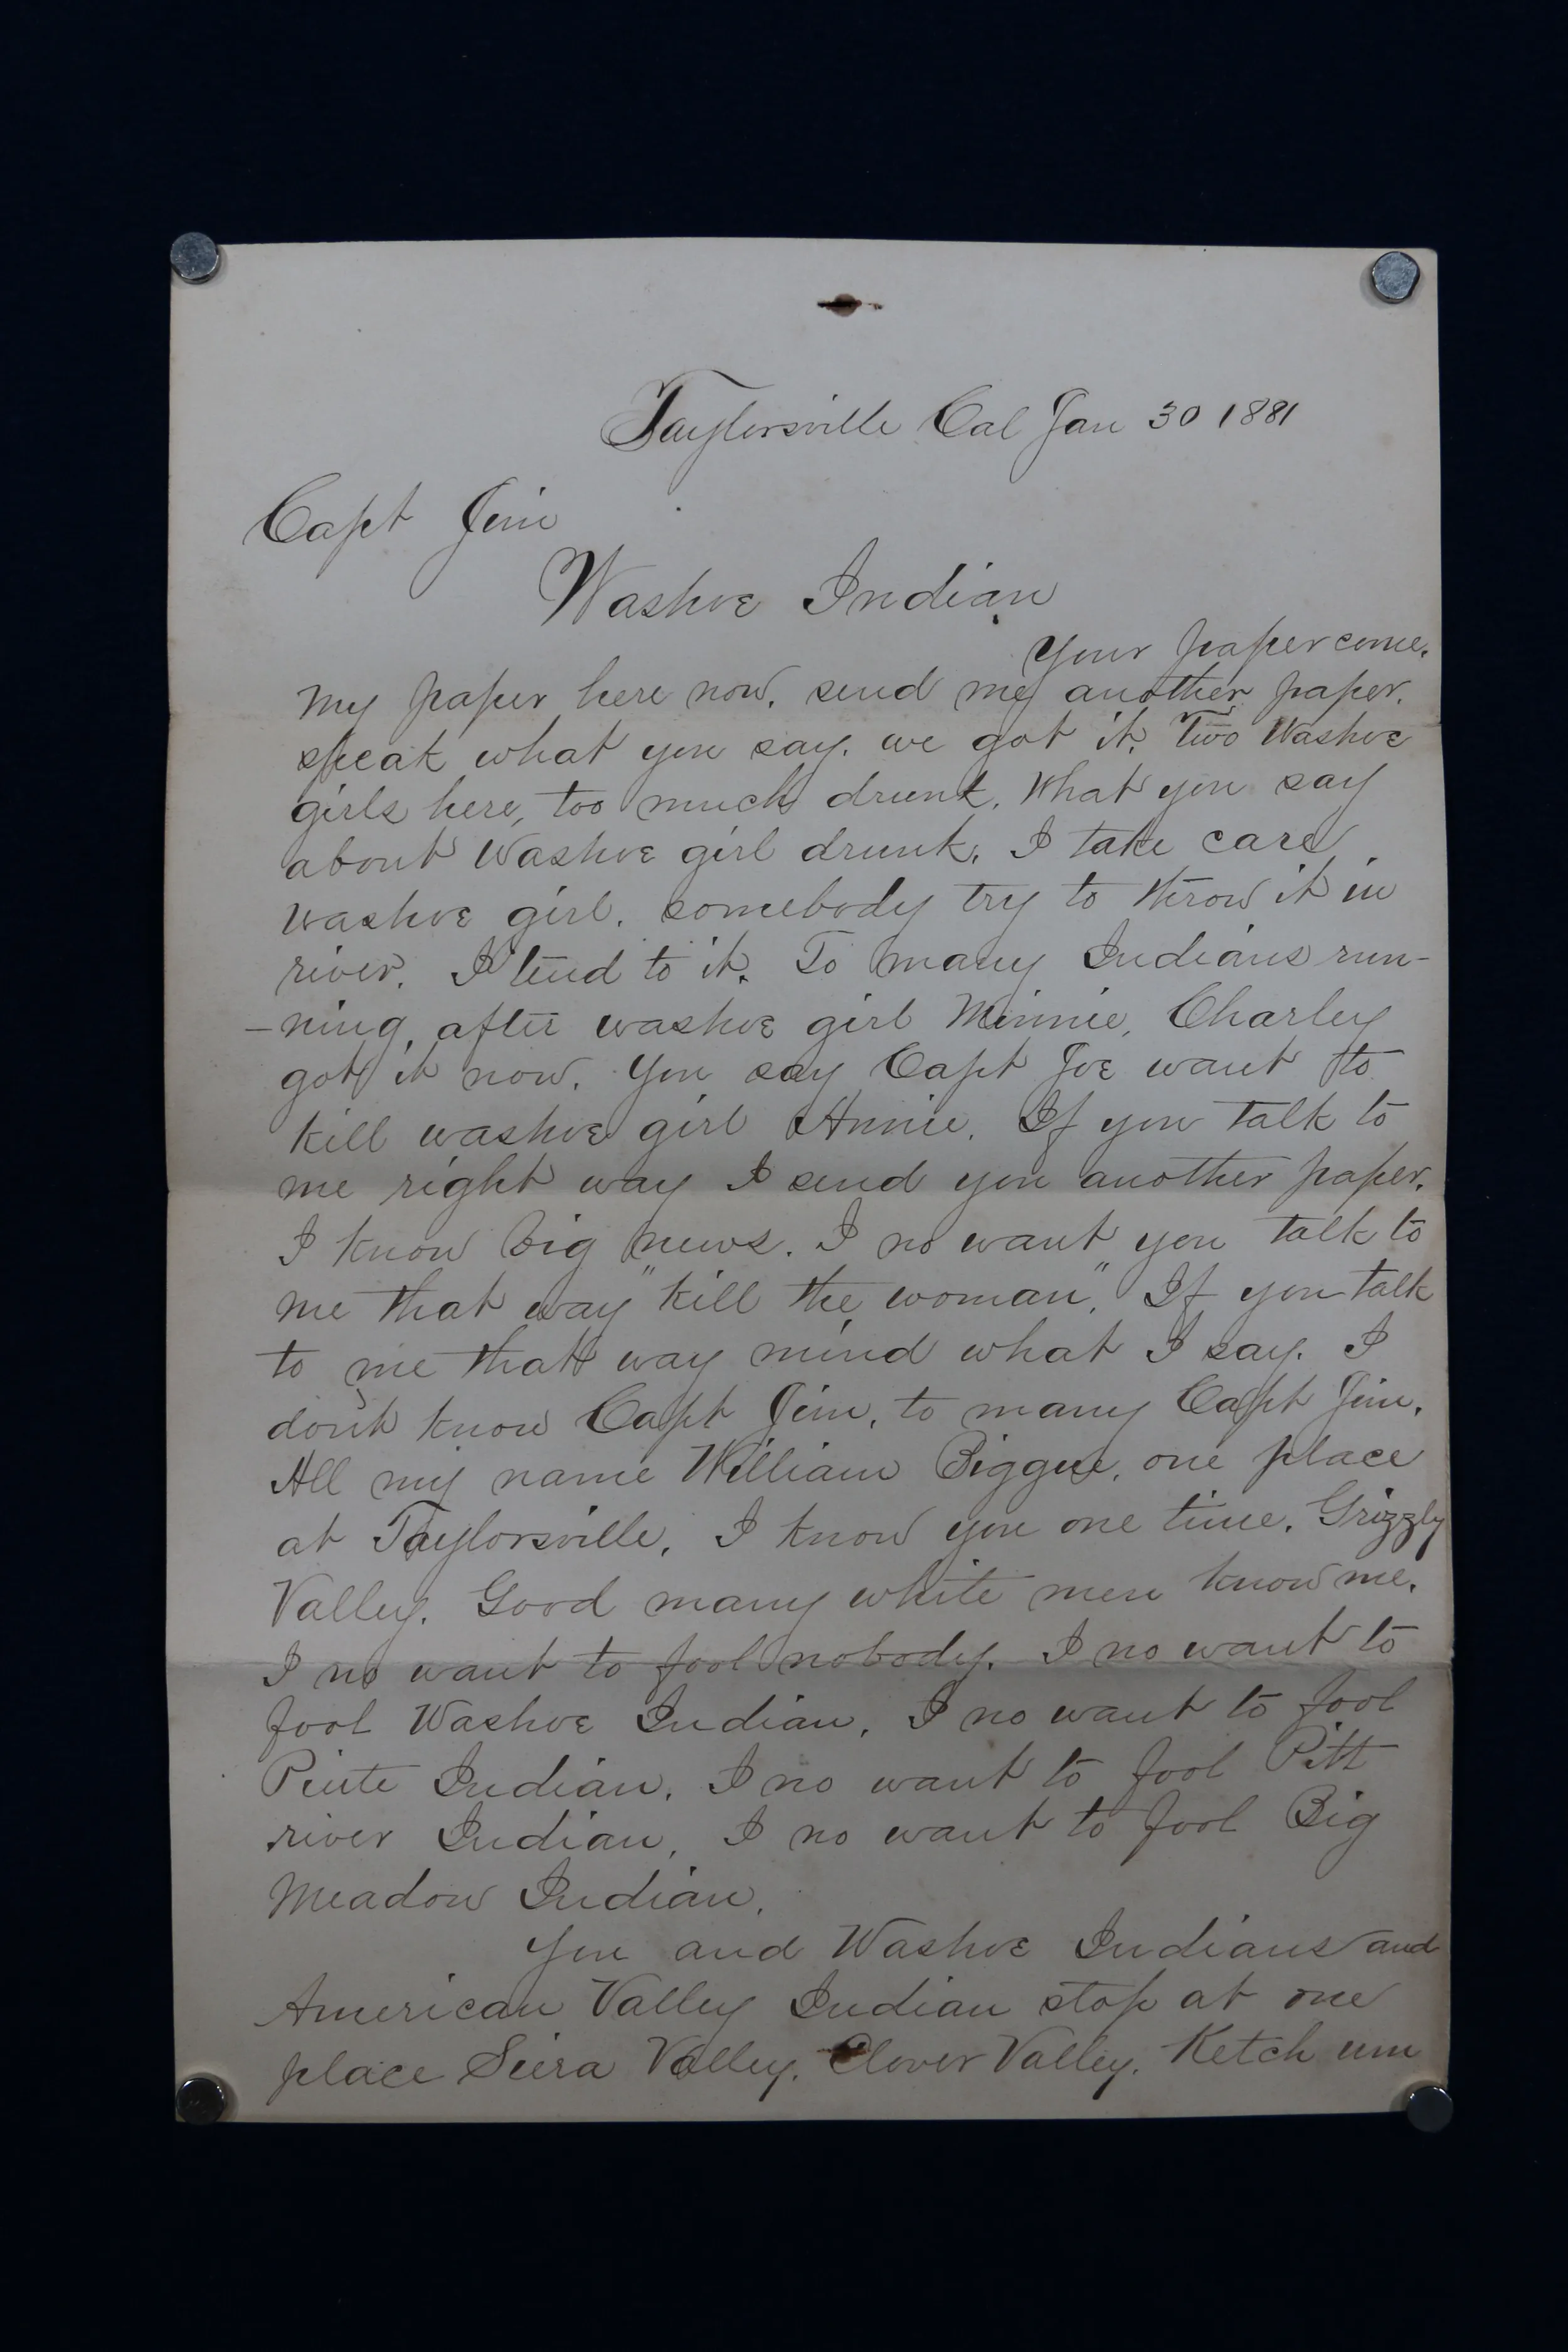 Taylorsville Cal Jan 30 1881
Capt Jim
Washoe Indian
Your paper come.
my paper here now. send me another paper.
speak what you say. we got it. Two Washoe
girls here, too much drunk. What you say
about Washoe girl drunk. I take care
washoe girl. somebody try to throw it in
river. I tend to it. To many Indians run-
-ning, after washoe girl Minnie, Charley
got it now. You say Capt Joe want to
kill washoe girl Annie. If you talk to
me right way I send you another paper.
I know big news. I no want you talk to
me that way "kill the woman". If you talk
to me that way mind what I say. I
don't know Capt Jim, to many Capt Jim.
All my name William Biggue, one place
at Taylorsville. I know you one time. Grizzly
Valley. Good many white men know me.
I no want to fool nobody. I no want to
fool Washoe Indian. I no want to fool
Piute Indian. I no want to fool Pitt
river Indian, I no want to fool Big
Meadow Indian.
You and Washoe Indians and
American Valley Indian stop at one
place Siera Valley. Clover Valley. Ketch um